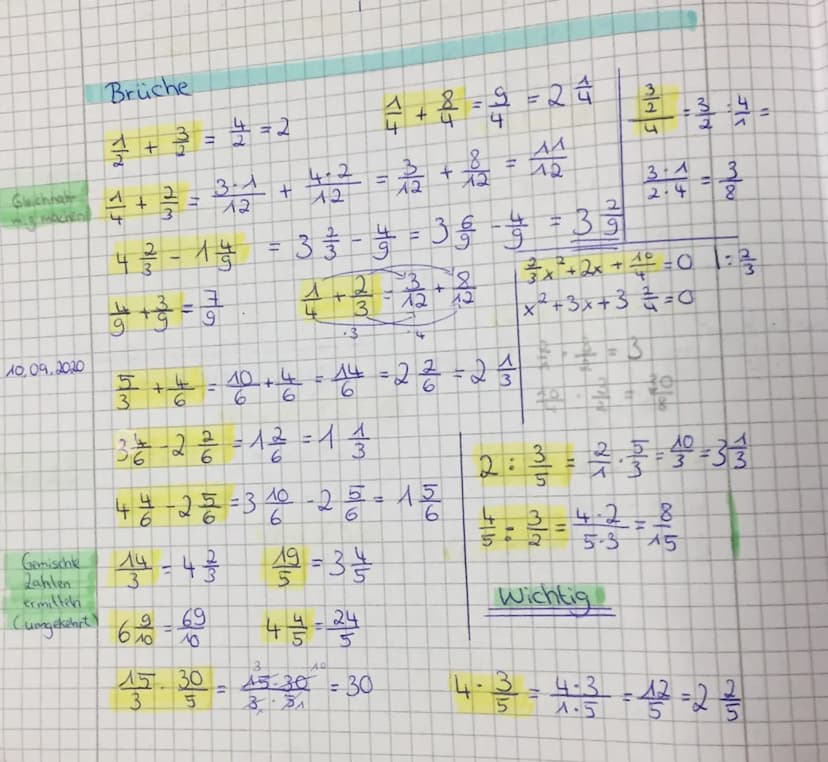 Brüche
1/2 + 3/2 = 4/2 = 2
1/4 + 8/4 = 9/4 = 2 1/4
(3/2)/4 = 3/2 : 4/1 =
3·1/2·4 = 3/8
Gleichnamig machen
1/4 + 2/3 = 3·1/12 + 4·2/12 = 3/12 + 8/12 = 11/12
4 2/3 - 1 4/9 = 3 2/3 - 4/9 = 3 6/9 - 4/9 = 3 2/9
2/3x² + 2x + 10/4 = 0 | : 2/3
x² + 3x + 3 3/4 = 0
4/9 + 3/9 = 7/9
1/4 + 2/3 = 3/12 + 8/12
·3 ·4
10.09.2020
5/3 + 4/6 = 10/6 + 4/6 = 14/6 = 2 2/6 = 2 1/3
3 4/6 - 2 2/6 = 1 2/6 = 1 1/3
2 : 3/5 = 2/1 · 5/3 = 10/3 = 3 1/3
4 4/6 - 2 5/6 = 3 10/6 - 2 5/6 = 1 5/6
4/5 : 3/2 = 4·2/5·3 = 8/15
Gemischte
Zahlen
ermitteln
(umgekehrt)
14/3 = 4 2/3
19/5 = 3 4/5
Wichtig
6 9/10 = 69/10
4 4/5 = 24/5
15/3 · 30/5 = 15·30/3·5 = 30
4 · 3/5 = 4·3/1·5 = 12/5 = 2 2/5